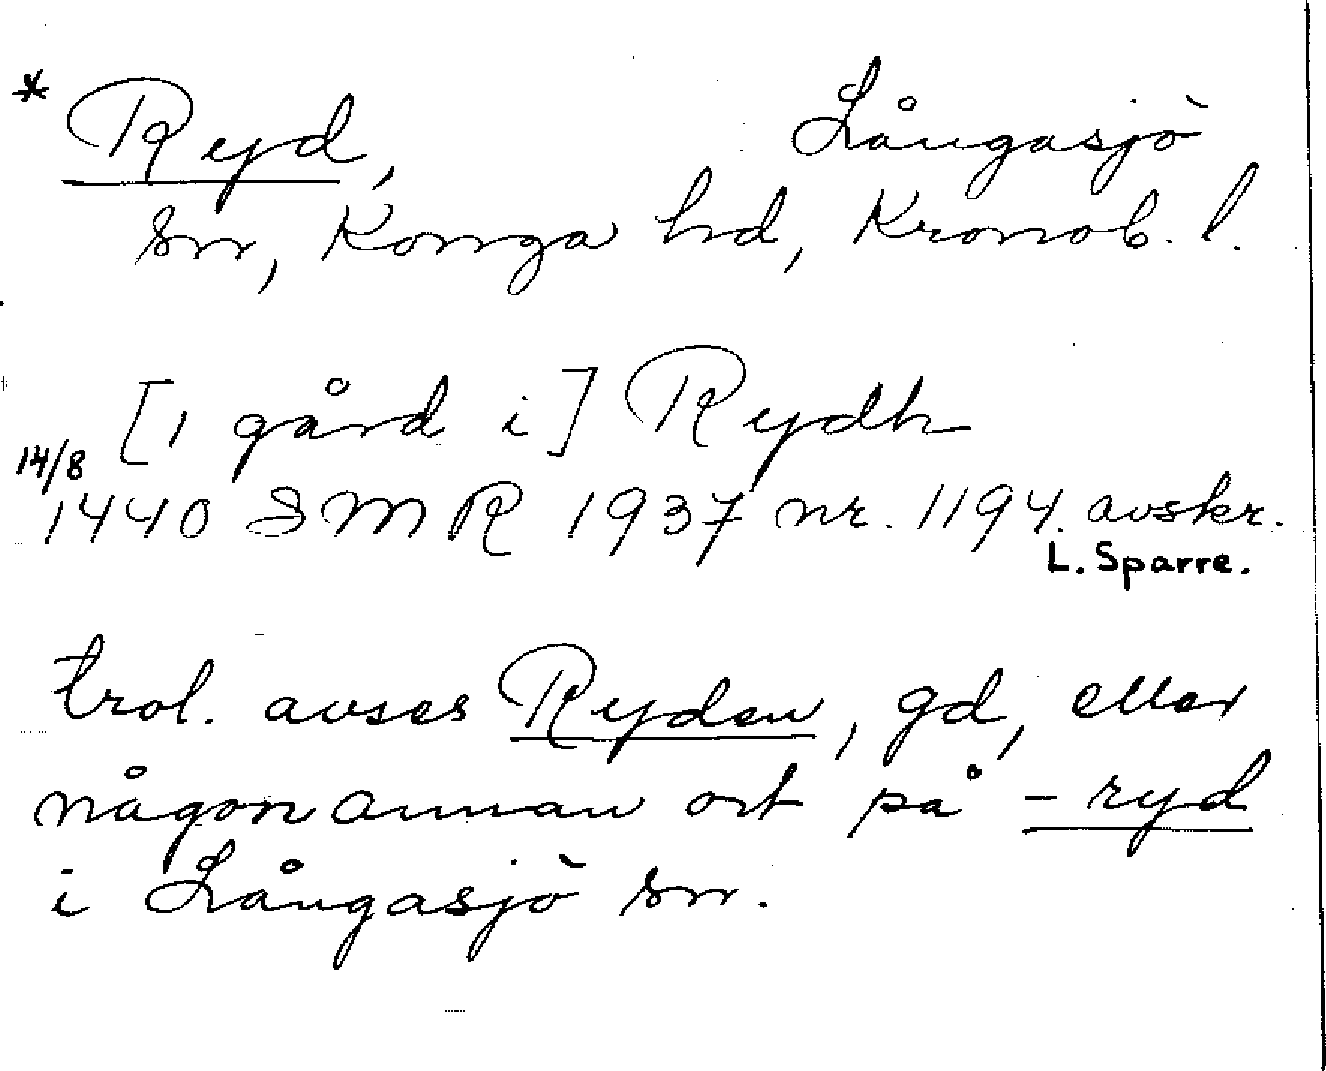 * Ryd, Långasjö
sn, Konga hd, Kronob. l.
[1 gård i] Rydh
14/8
1440 SMR 1937 nr. 1194. avskr.
L. Sparre.
trol. avses Ryden, gd, eller
någon annan ort på -ryd
i Långasjö sn.